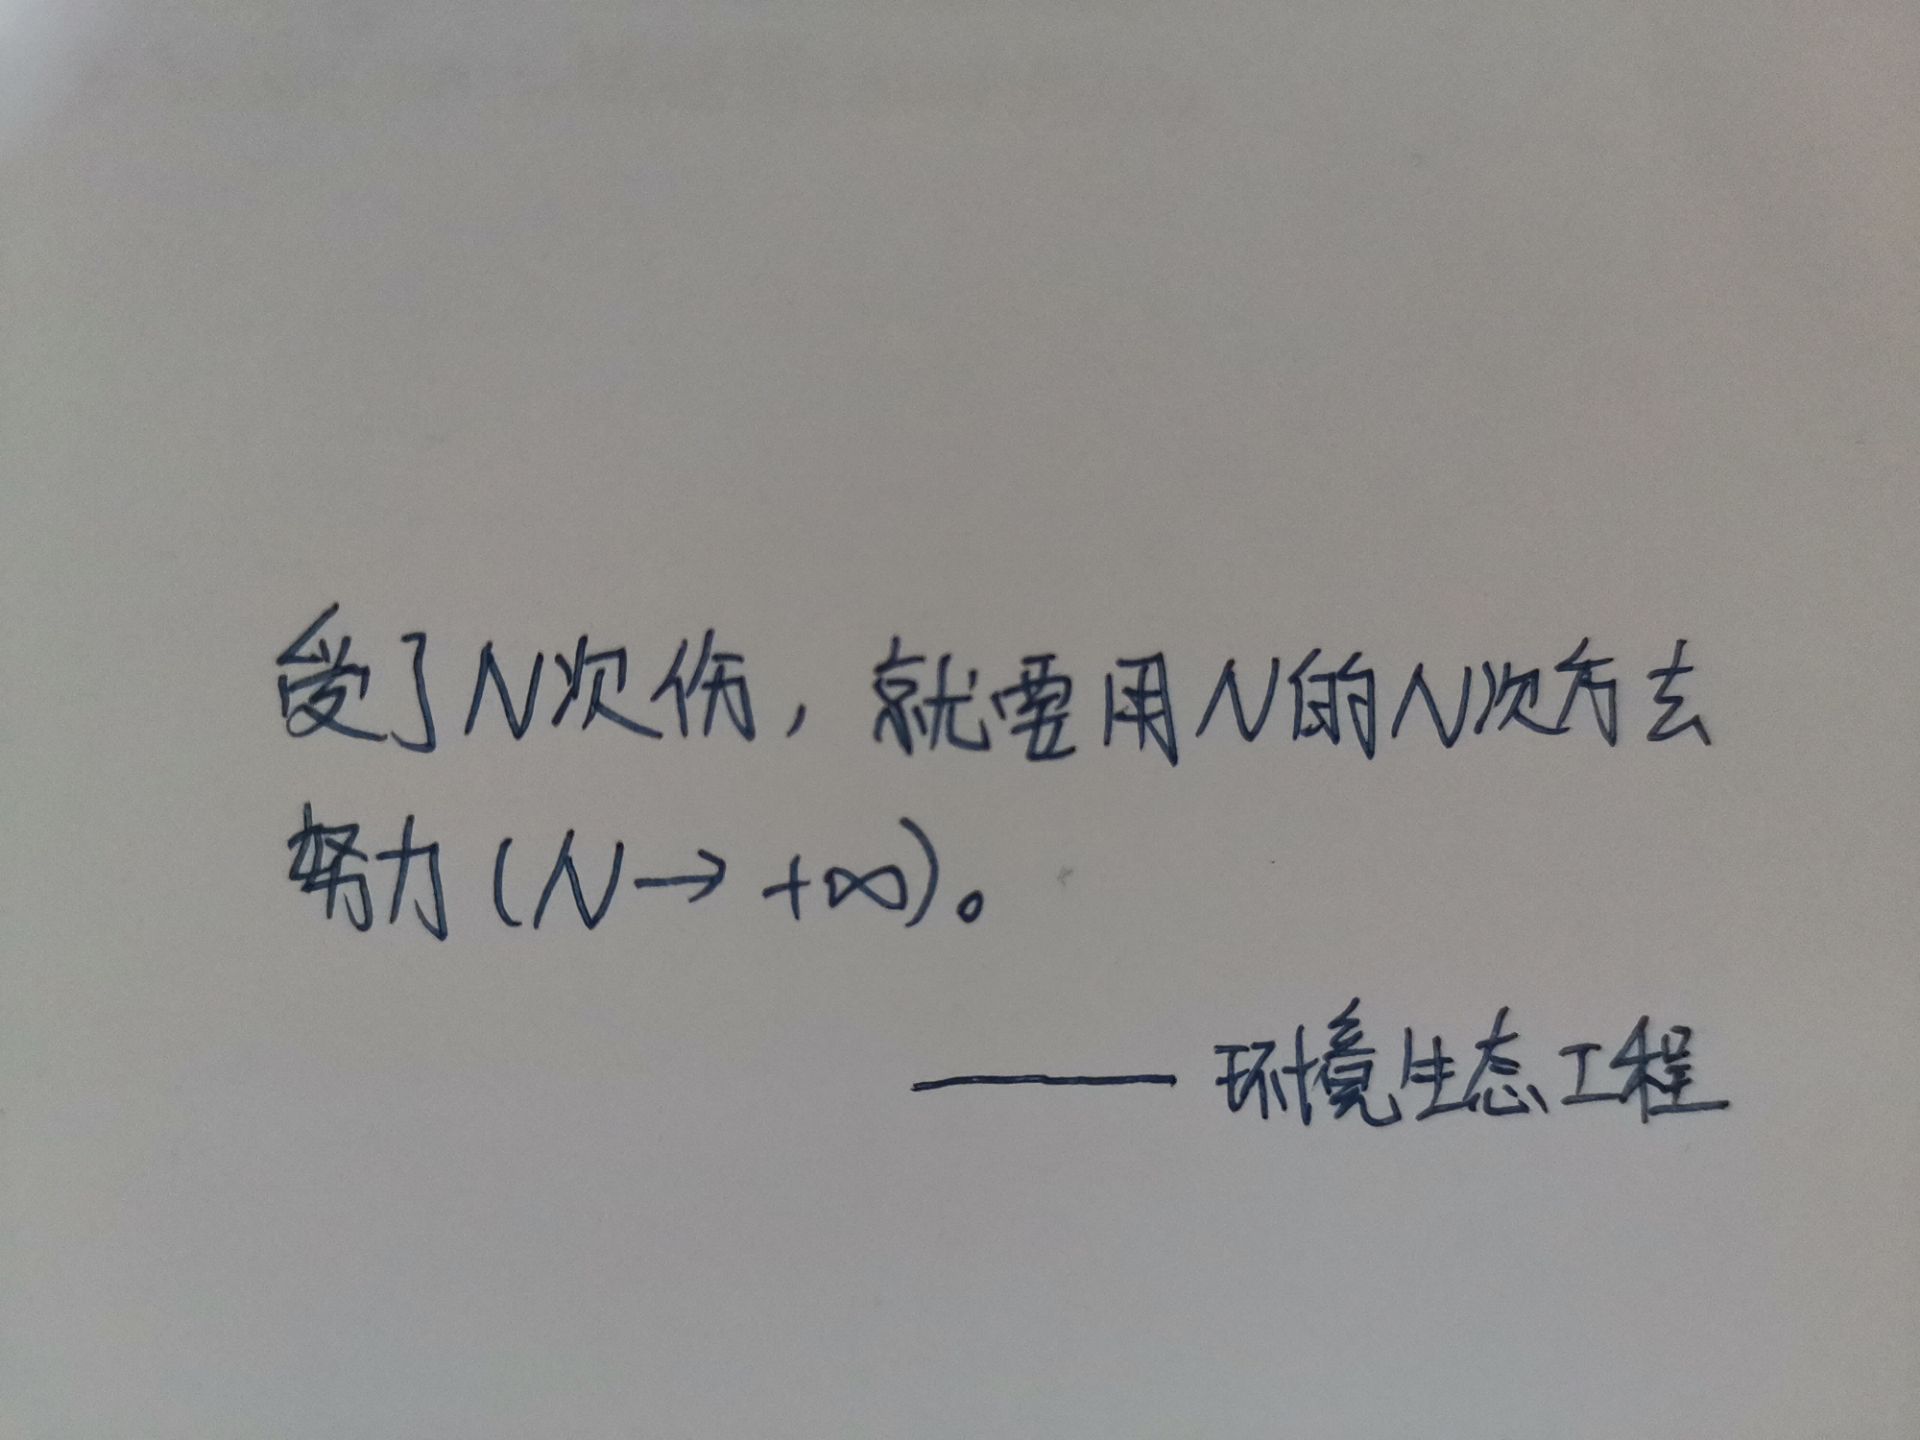 受了N次伤，就要用N的N次方去
努力(N→+∞)。
——环境生态工程